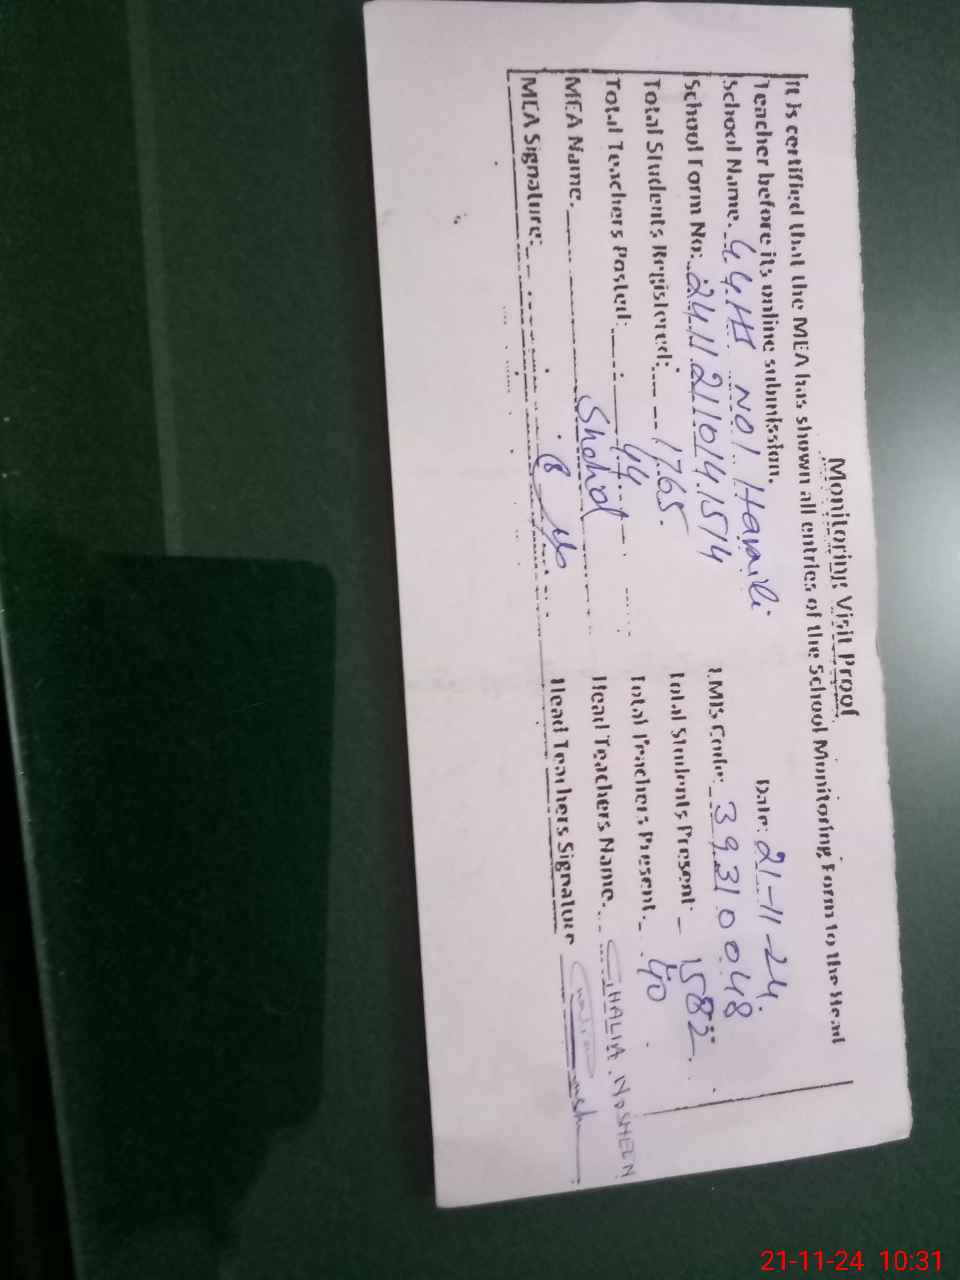 Monitoring Visit Proof
It is certified that the MEA has shown all entries of the School Monitoring Form to the Head
Teacher before its online submission. Date: 21-11-24
School Name. GGHS NO1 Havaili EMIS Code: 39310048
School Form No: 24112110141514 Total Students Present: 1582
Total Students Registered: 1765 Total Teachers Present. 40
Total Teachers Posted: 44 Head Teachers Name. GHALIA NOSHEEN
MEA Name. Shahid Head Teachers Signature
MEA Signature:
21-11-24 10:31